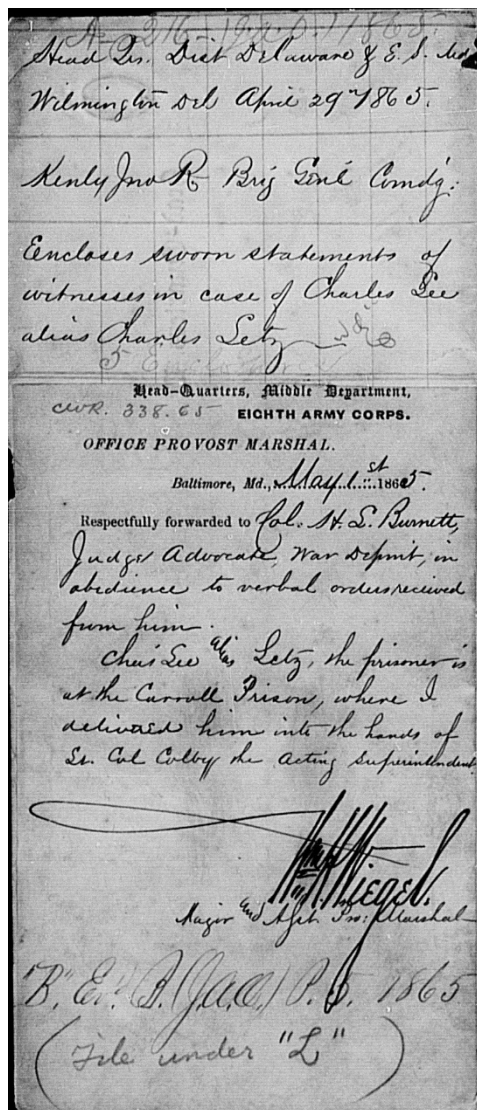 A 216 (J.A.O.) 1865.
Head Qrs. Dist Delaware & E. S. Md
Wilmington Del April 29th 1865.
Kenly Jno R Brig Genl Comdg.
Encloses sworn statements of
witnesses in case of Charles Lee
alias Charles Letz
5 Enclosures
Head-Quarters, Middle Department,
CWR. 338. 65 EIGHTH ARMY CORPS.
OFFICE PROVOST MARSHAL.
Baltimore, Md., May 1st 1865.
Respectfully forwarded to Col. H. L. Burnett,
Judge Advocate, War Depmt, in
obedience to verbal orders received
from him.
Chas Lee alias Letz, the prisoner is
at the Carroll Prison, where I
delivered him into the hands of
Lt. Col Colby the acting Superintendent.
Wm H Wiegel.
Major and Asst. Pro: Marshal
"B." E. B. (J.A.O.) P. 5. 1865
(File under "L")